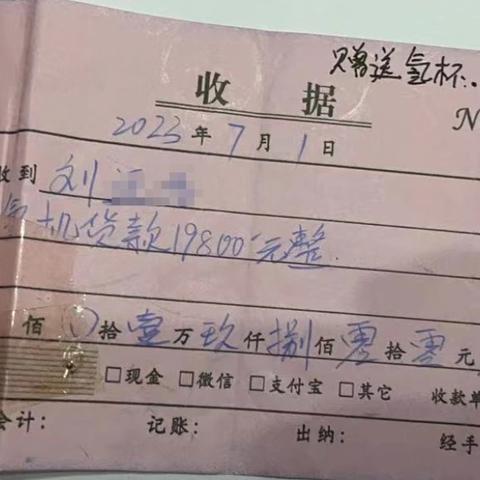 赠送氢杯..
收据
N
2023年7月1日
收到 刘
氢机货款19800元整.
佰 拾壹万玖仟捌佰零拾零元
□现金 □微信 □支付宝 □其它 收款单
会计: 记账: 出纳: 经手